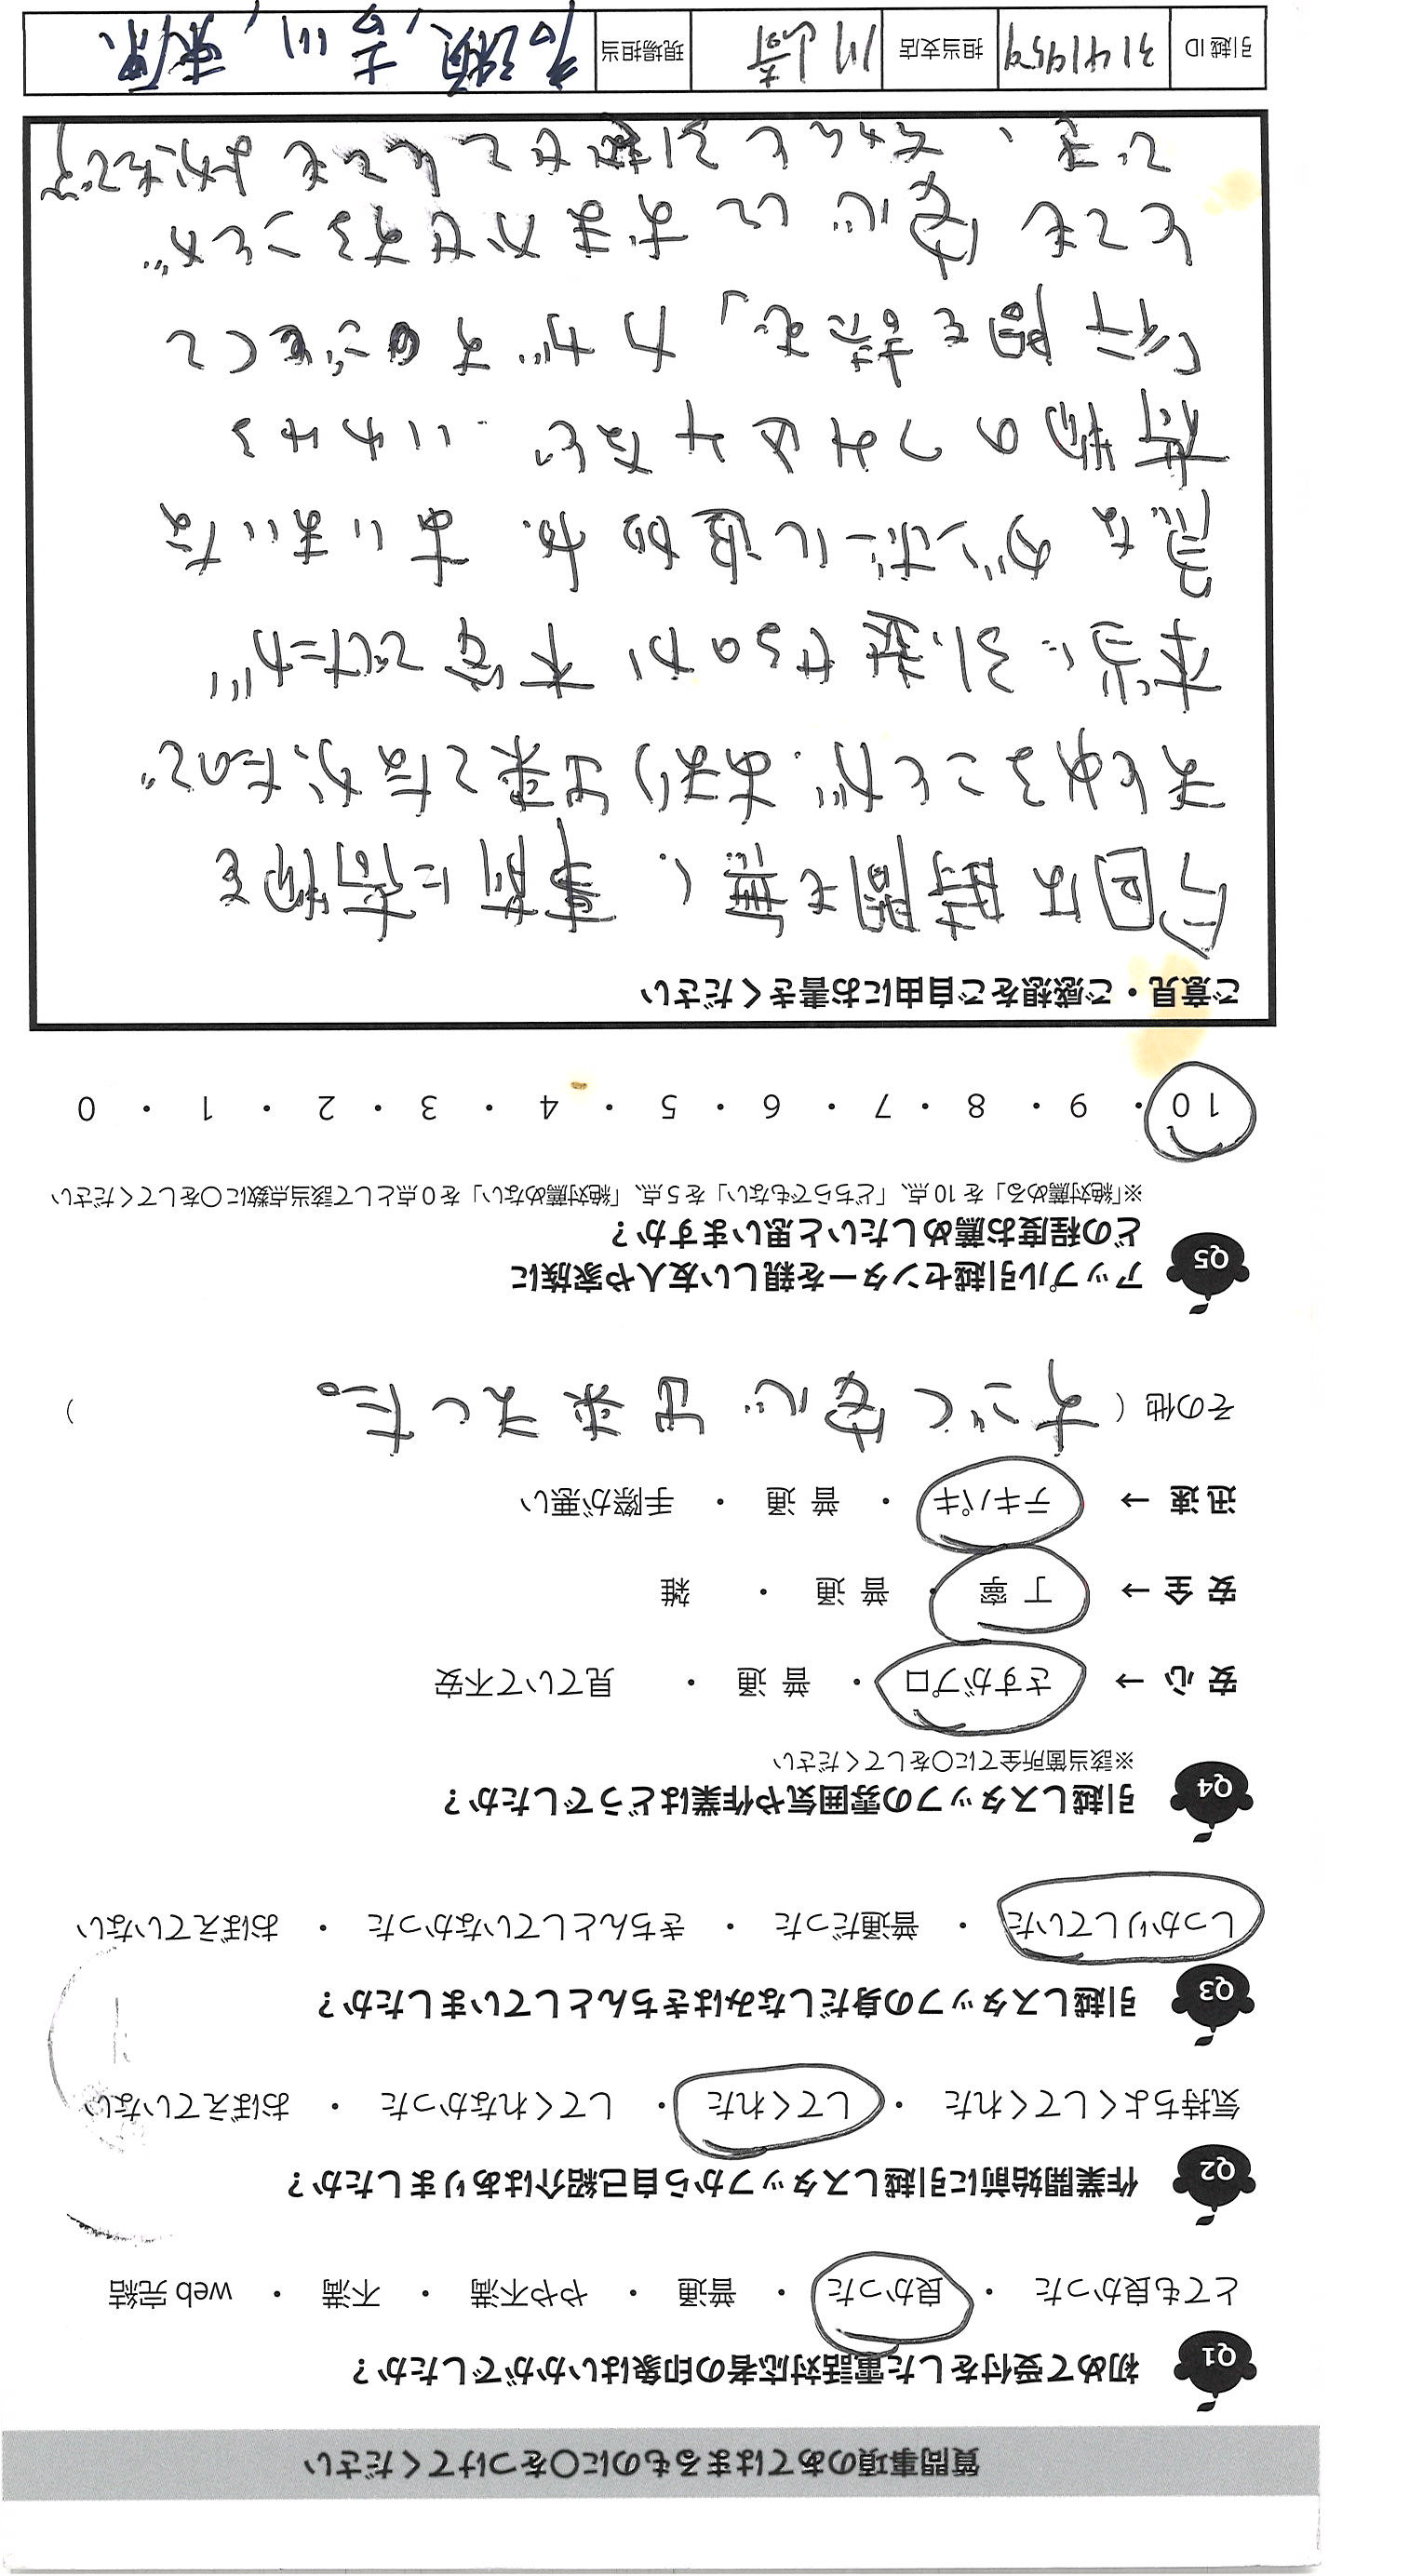 質問事項のあてはまるものに〇をつけてください
Q1 初めて受付をした電話対応者の印象はいかがでしたか？
とても良かった ・ 良かった ・ 普通 ・ やや不満 ・ 不満 ・ web 完結
Q2 作業開始前に引越しスタッフから自己紹介はありましたか？
気持ちよくしてくれた ・ してくれた ・ してくれなかった ・ おぼえていない
Q3 引越しスタッフの身だしなみはきちんとしていましたか？
しっかりしていた ・ 普通だった ・ きちんとしていなかった ・ おぼえていない
Q4 引越しスタッフの雰囲気や作業はどうでしたか？
※該当箇所全てに〇をしてください
安 心 → さすがプロ ・ 普 通 ・ 見ていて不安
安 全 → 丁 寧 ・ 普 通 ・ 雑
迅 速 → テキパキ ・ 普 通 ・ 手際が悪い
その他（ すごく安心出来ました。 ）
Q5 アップル引越センターを親しい友人や家族に
どの程度お薦めしたいと思いますか？
※「絶対薦める」を 10 点、「どちらでもない」を 5 点、「絶対薦めない」を 0 点として該当点数に〇をしてください
10 ・ 9 ・ 8 ・ 7 ・ 6 ・ 5 ・ 4 ・ 3 ・ 2 ・ 1 ・ 0
ご意見・ご感想をご自由にお書きください
今回は時間も無く、事前に荷物を
まとめることが、あまり出来てなかったので
本当に引越せるのか不安でしたが
急なダンボール追加や、あいまいな
荷物のつめこみなど、いわゆる
「行間を読む」力がすごくて
とても安心しておまかせすることが
でき、安心して引越せてとてもよかったです
引越 ID 3141959 担当支店 川崎 現場担当 吉川